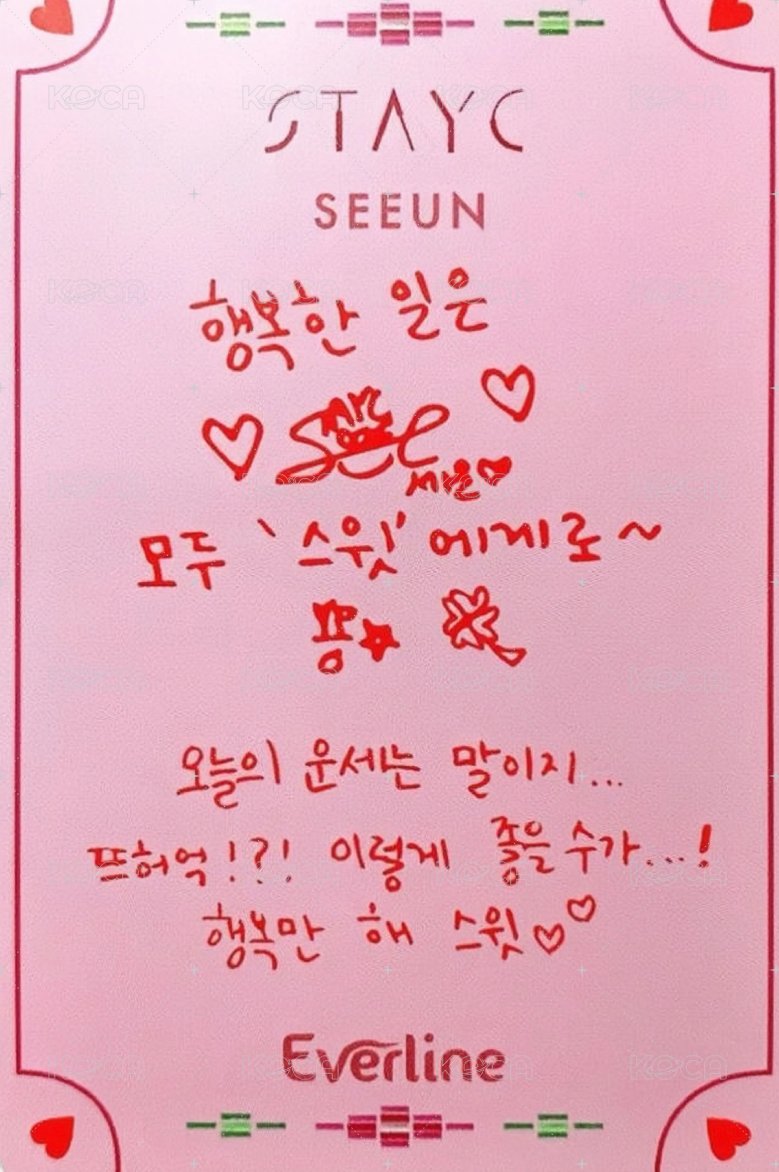 STAYC
SEEUN
행복한 일은
세은
모두 '스윗'에게로~
뿅
오늘의 운세는 말이지...
뜨허억!?! 이렇게 좋을 수가...!
행복만 해 스윗
Everline
KOCA